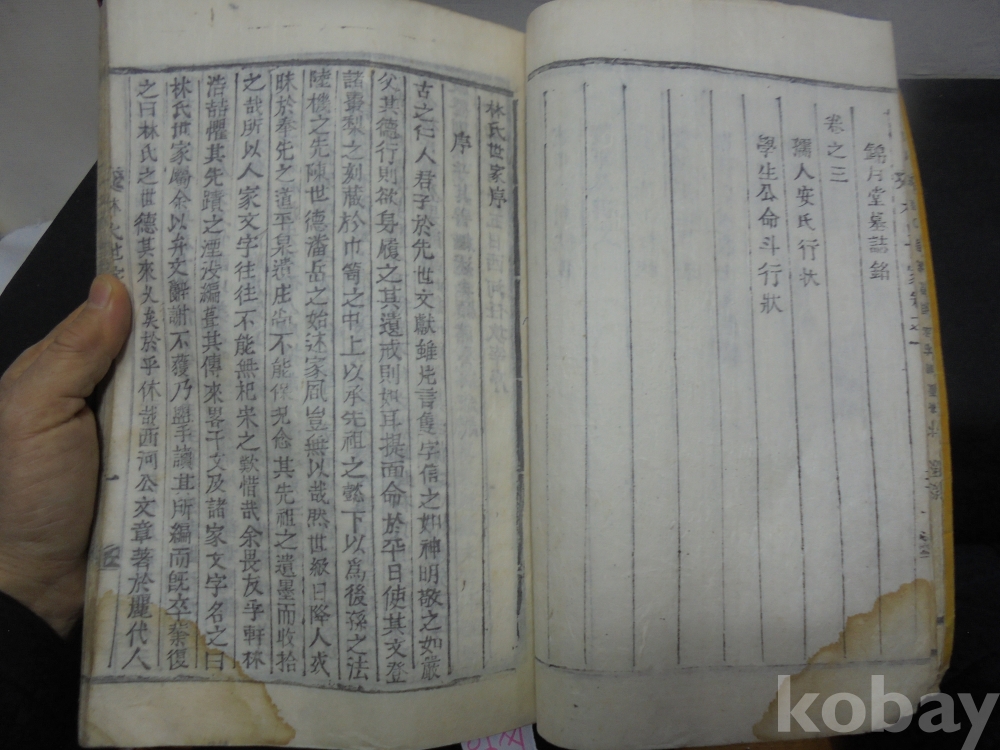 錦月堂墓誌銘
卷之三
孺人安氏行狀
學生公命斗行狀
林氏世家序
序
古之仁人君子於先世文獻雖片言隻字信之如神明敬之如嚴
父其德行則欲身履之其遺戒則如耳提而命於平日使其文登
諸棗梨之刻藏於巾笥之中上以承先祖之懿下以爲後孫之法
陸機之先陳世德潘岳之始述家風豈無以哉然世級日降人或
昧於奉先之道平泉遺庄尙不能保况念其先祖之遺墨而收拾
之哉所以人家文字往往不能無杞宋之歎惜哉余畏友乎軒林
浩喆懼其先蹟之湮汝編葺其傳來畧干文及諸家文字名之曰
林氏世家屬余以弁文辭謝不獲乃盥手讀其所編而旣卒業復
之曰林氏之世德其來久矣於乎休哉西河公文章著於麗代人
一
kobay